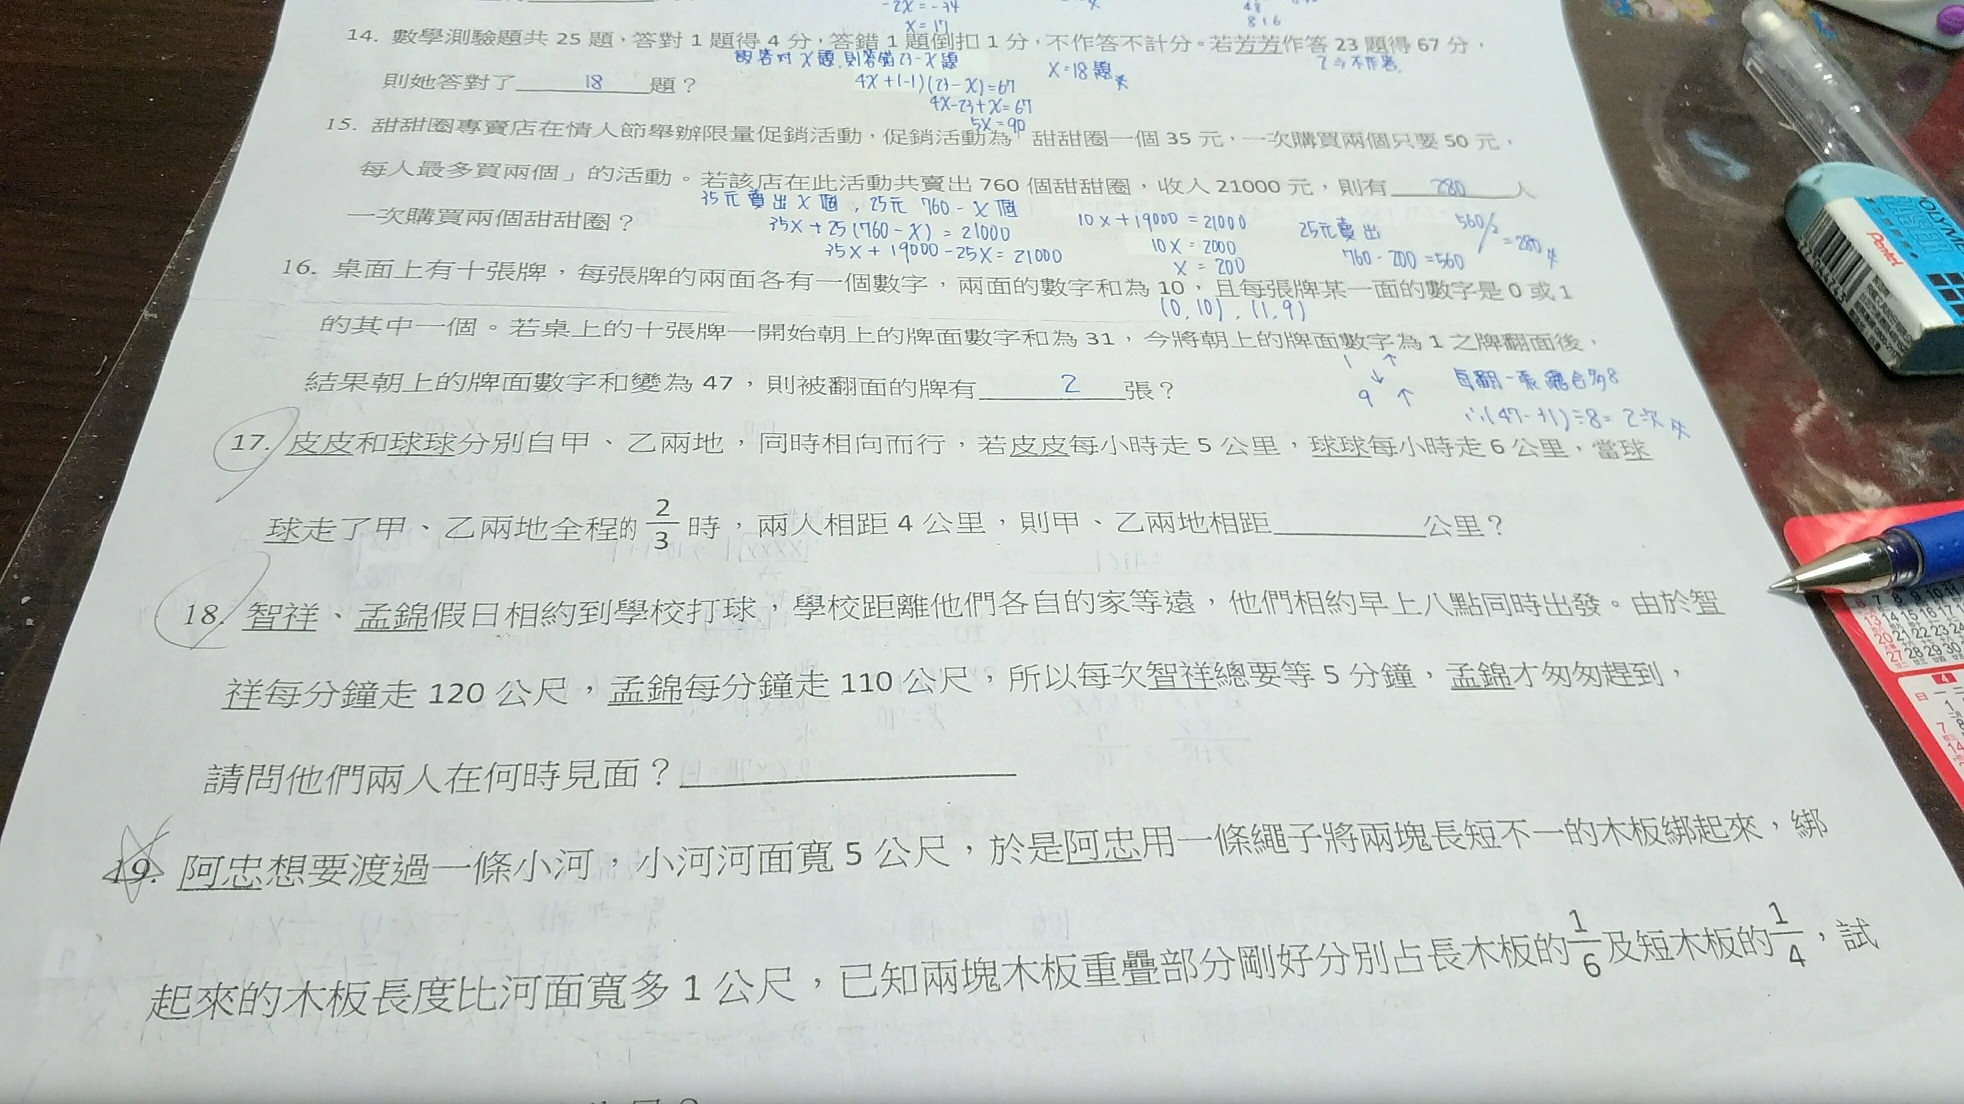 -2X = -34
X = 17
816
14. 數學測驗題共 25 題，答對 1 題得 4 分，答錯 1 題倒扣 1 分，不作答不計分。若芳芳作答 23 題得 67 分，
設答対 X 題，則答錯 23-X 題
2→不作答.
則她答對了 18 題？
4X+(-1)(23-X)=67
X=18題
4X-23+X=67
5X=90
15. 甜甜圈專賣店在情人節舉辦限量促銷活動，促銷活動為「甜甜圈一個 35 元，一次購買兩個只要 50 元，
每人最多買兩個」的活動。若該店在此活動共賣出 760 個甜甜圈，收入 21000 元，則有 280 人
35元賣出 X 個，25元 760-X 個
一次購買兩個甜甜圈？
35X+25(760-X)=21000
35X+19000-25X=21000
10X+19000=21000
10X=2000
X=200
25元賣出
760-200=560
560/2=280
16. 桌面上有十張牌，每張牌的兩面各有一個數字，兩面的數字和為 10，且每張牌某一面的數字是 0 或 1
(0,10),(1,9)
的其中一個。若桌上的十張牌一開始朝上的牌面數字和為 31，今將朝上的牌面數字為 1 之牌翻面後，
1 ↑
↓
9 ↑
結果朝上的牌面數字和變為 47，則被翻面的牌有 2 張？
每翻一張會多8
∴(47-31)÷8=2次
17. 皮皮和球球分別自甲、乙兩地，同時相向而行，若皮皮每小時走 5 公里，球球每小時走 6 公里，當球
球走了甲、乙兩地全程的 2/3 時，兩人相距 4 公里，則甲、乙兩地相距 公里？
18. 智祥、孟錦假日相約到學校打球，學校距離他們各自的家等遠，他們相約早上八點同時出發。由於智
祥每分鐘走 120 公尺，孟錦每分鐘走 110 公尺，所以每次智祥總要等 5 分鐘，孟錦才匆匆趕到，
請問他們兩人在何時見面？
19. 阿忠想要渡過一條小河，小河河面寬 5 公尺，於是阿忠用一條繩子將兩塊長短不一的木板綁起來，綁
起來的木板長度比河面寬多 1 公尺，已知兩塊木板重疊部分剛好分別占長木板的 1/6 及短木板的 1/4，試
Pentel